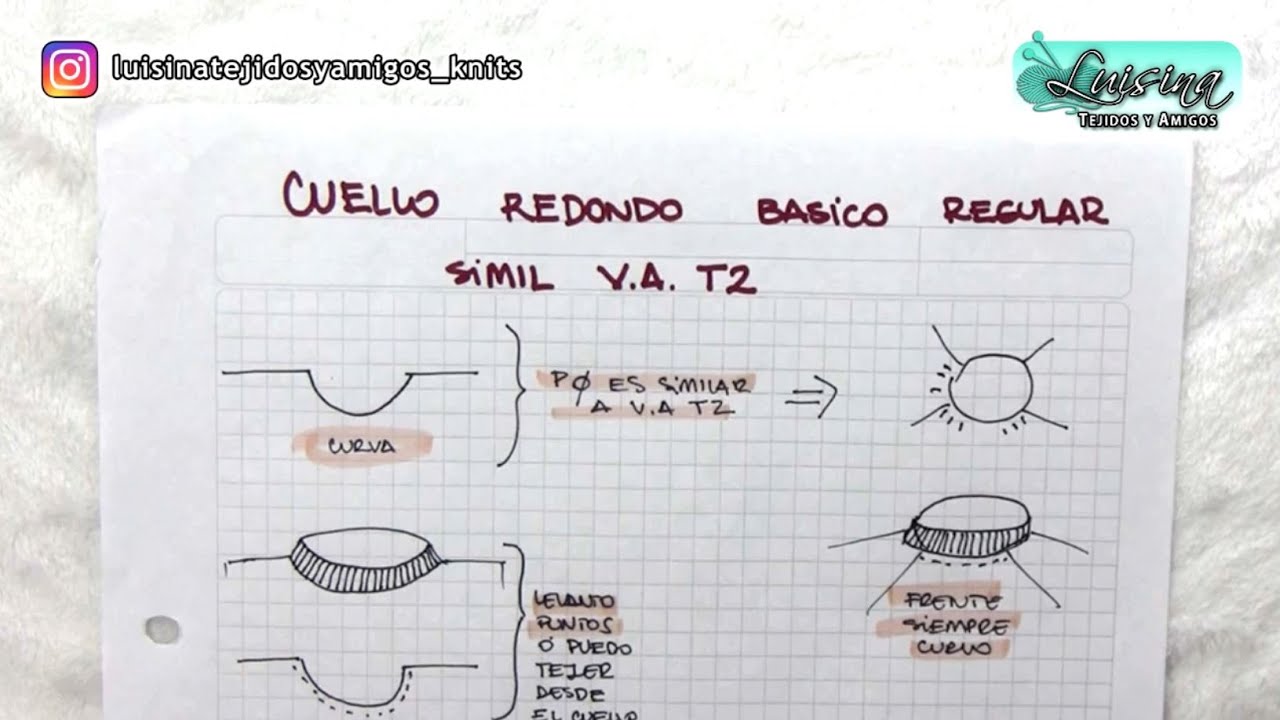 luisinatejidosyamigos_knits
Luisina
TEJIDOS Y AMIGOS
CUELLO REDONDO BASICO REGULAR
SIMIL V.A. T2
PØ ES SIMILAR
A V.A T2
CURVA
LEVANTO
PUNTOS
O PUEDO
TEJER
DESDE
EL CUELLO
FRENTE
SIEMPRE
CURVO